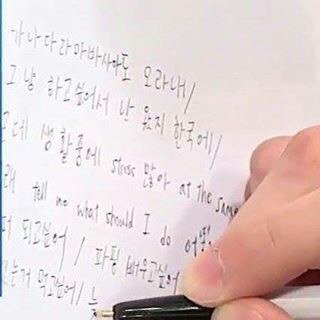 가나다라마바사아도 오라내/
그냥 하고싶어서 난 왔지 한국에/
근데 생활중에 stress 많아 at the same
tell me what should I do 어떡
되고싶어 / 파핑 배우고싶어
먹고싶어/ 느